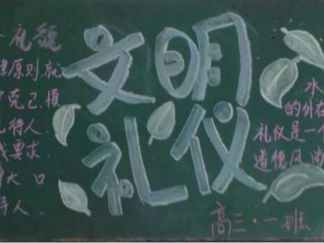 文明
礼仪
律原则,就
克己,慎
待人
我要求
大口
待人.
水
的外在
礼仪是一个
道德风尚
高三·一班